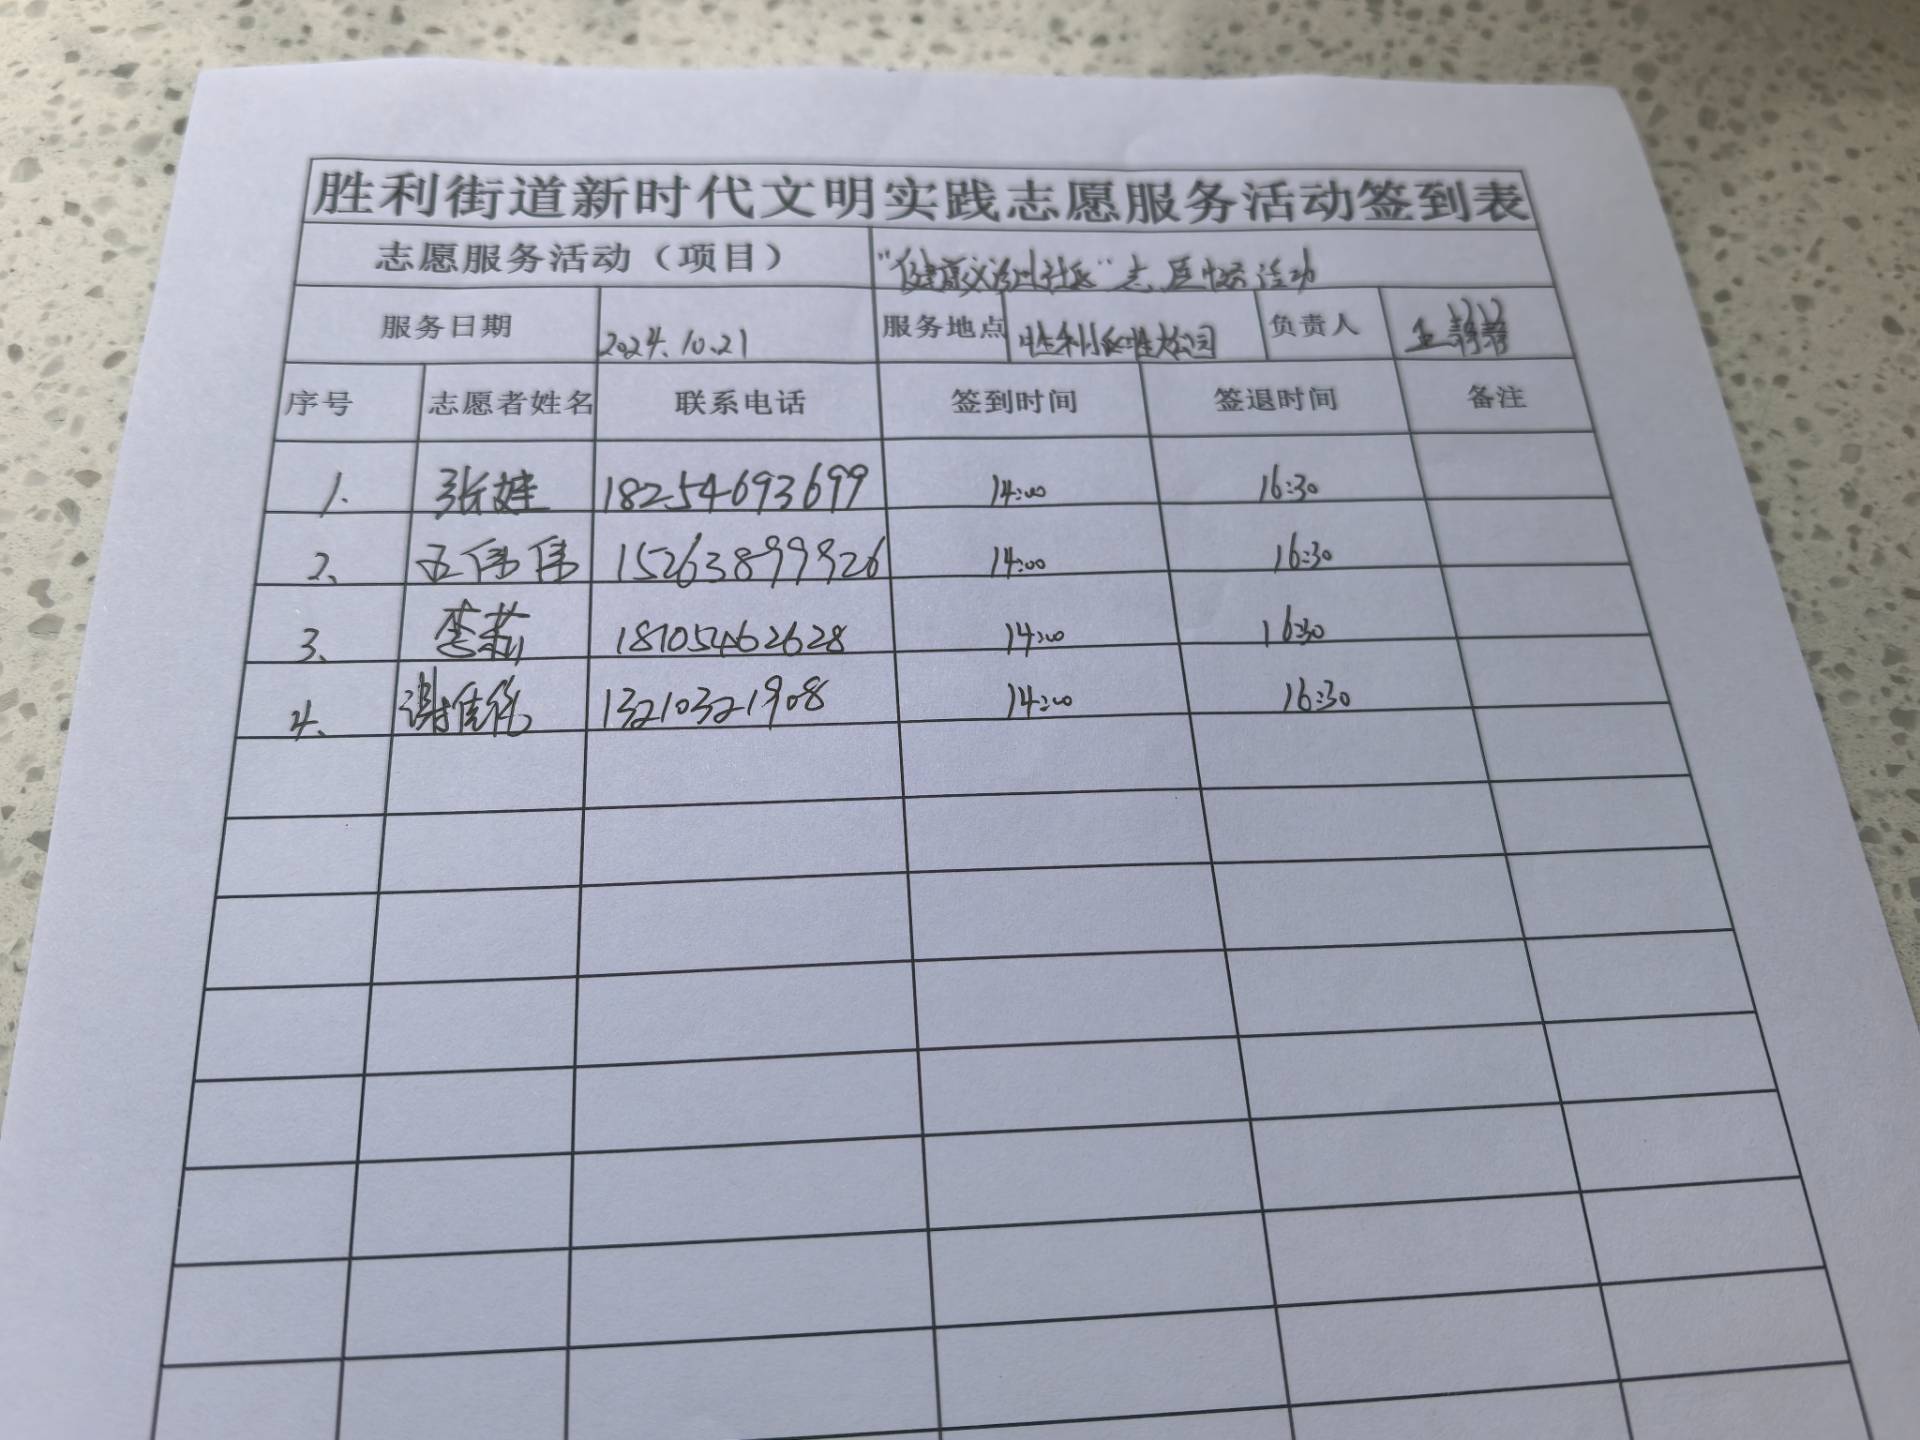 胜利街道新时代文明实践志愿服务活动签到表
志愿服务活动（项目） 志愿服务活动
服务日期 2024.10.21 服务地点 负责人 王静静
序号 志愿者姓名 联系电话 签到时间 签退时间 备注
1. 张娃 18254693699 14:00 16:30
2、 王伟伟 15263899926 14:00 16:30
3、 李莉 18105462628 14:00 16:30
4、 谢佳 13210321908 14:00 16:30